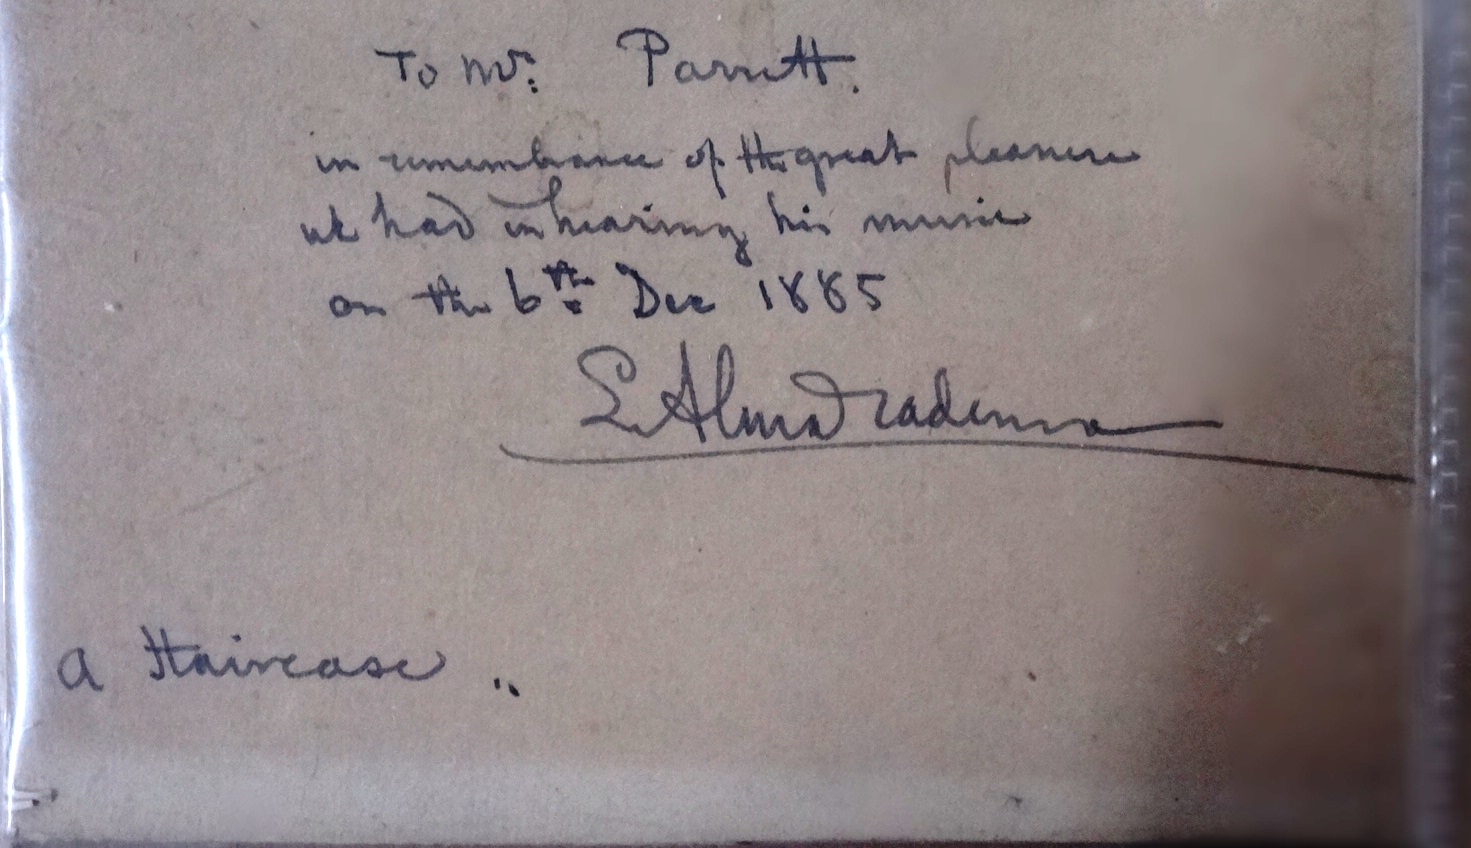 To Mr. Parratt.
in remembrance of the great pleasure
we had in hearing his music
on the 6th Dec 1885
L. Alma Tadema
a staircase ..